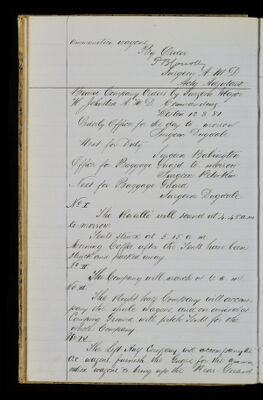 ammunition wagons
By Order
Surgeon A M D
Actg Adjutant
Company Orders by Surgeon Major
W Johnston A M D Commanding
12 3 81
Orderly Officer for the day to morrow
Surgeon Dugdale
Next for Duty
Surgeon Babington
Officer for Baggage Guard to morrow
Surgeon
Next for Baggage Guard
Surgeon Dugdale
No I
The Reveille will sound at 4.45 a m
to morrow
Tents struck at 5.15 a m
Morning Coffee after the Tents have been
struck and packed away
No II
The Company will march at 6 a.m.
No III
The Right half Company will accom
pany the whole wagons and on arrival at
Camping Ground will pitch Tents for the
whole Company
No IV
The left half Company will accompany the
Ox wagons furnish the Guard for the
wagons & bring up the Rear Guard